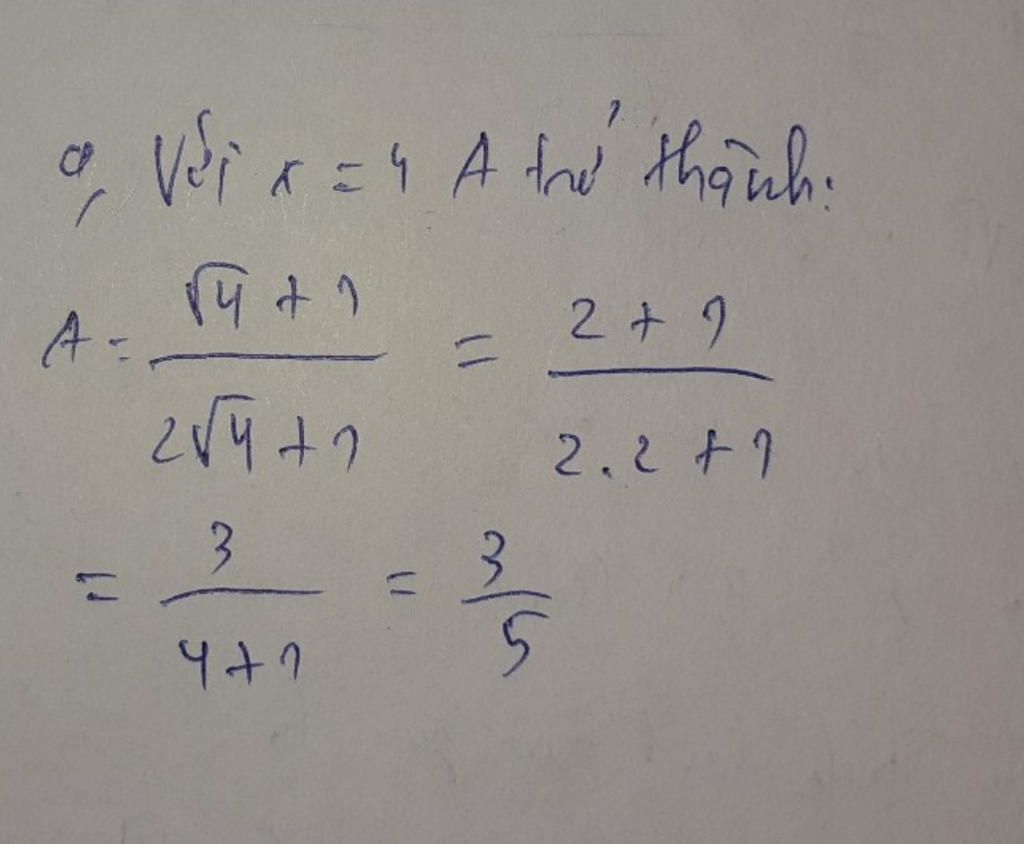 a, Với x = 4 A trở thành:
A = \frac{\sqrt{4} + 1}{2\sqrt{4} + 1} = \frac{2 + 1}{2.2 + 1}
= \frac{3}{4 + 1} = \frac{3}{5}